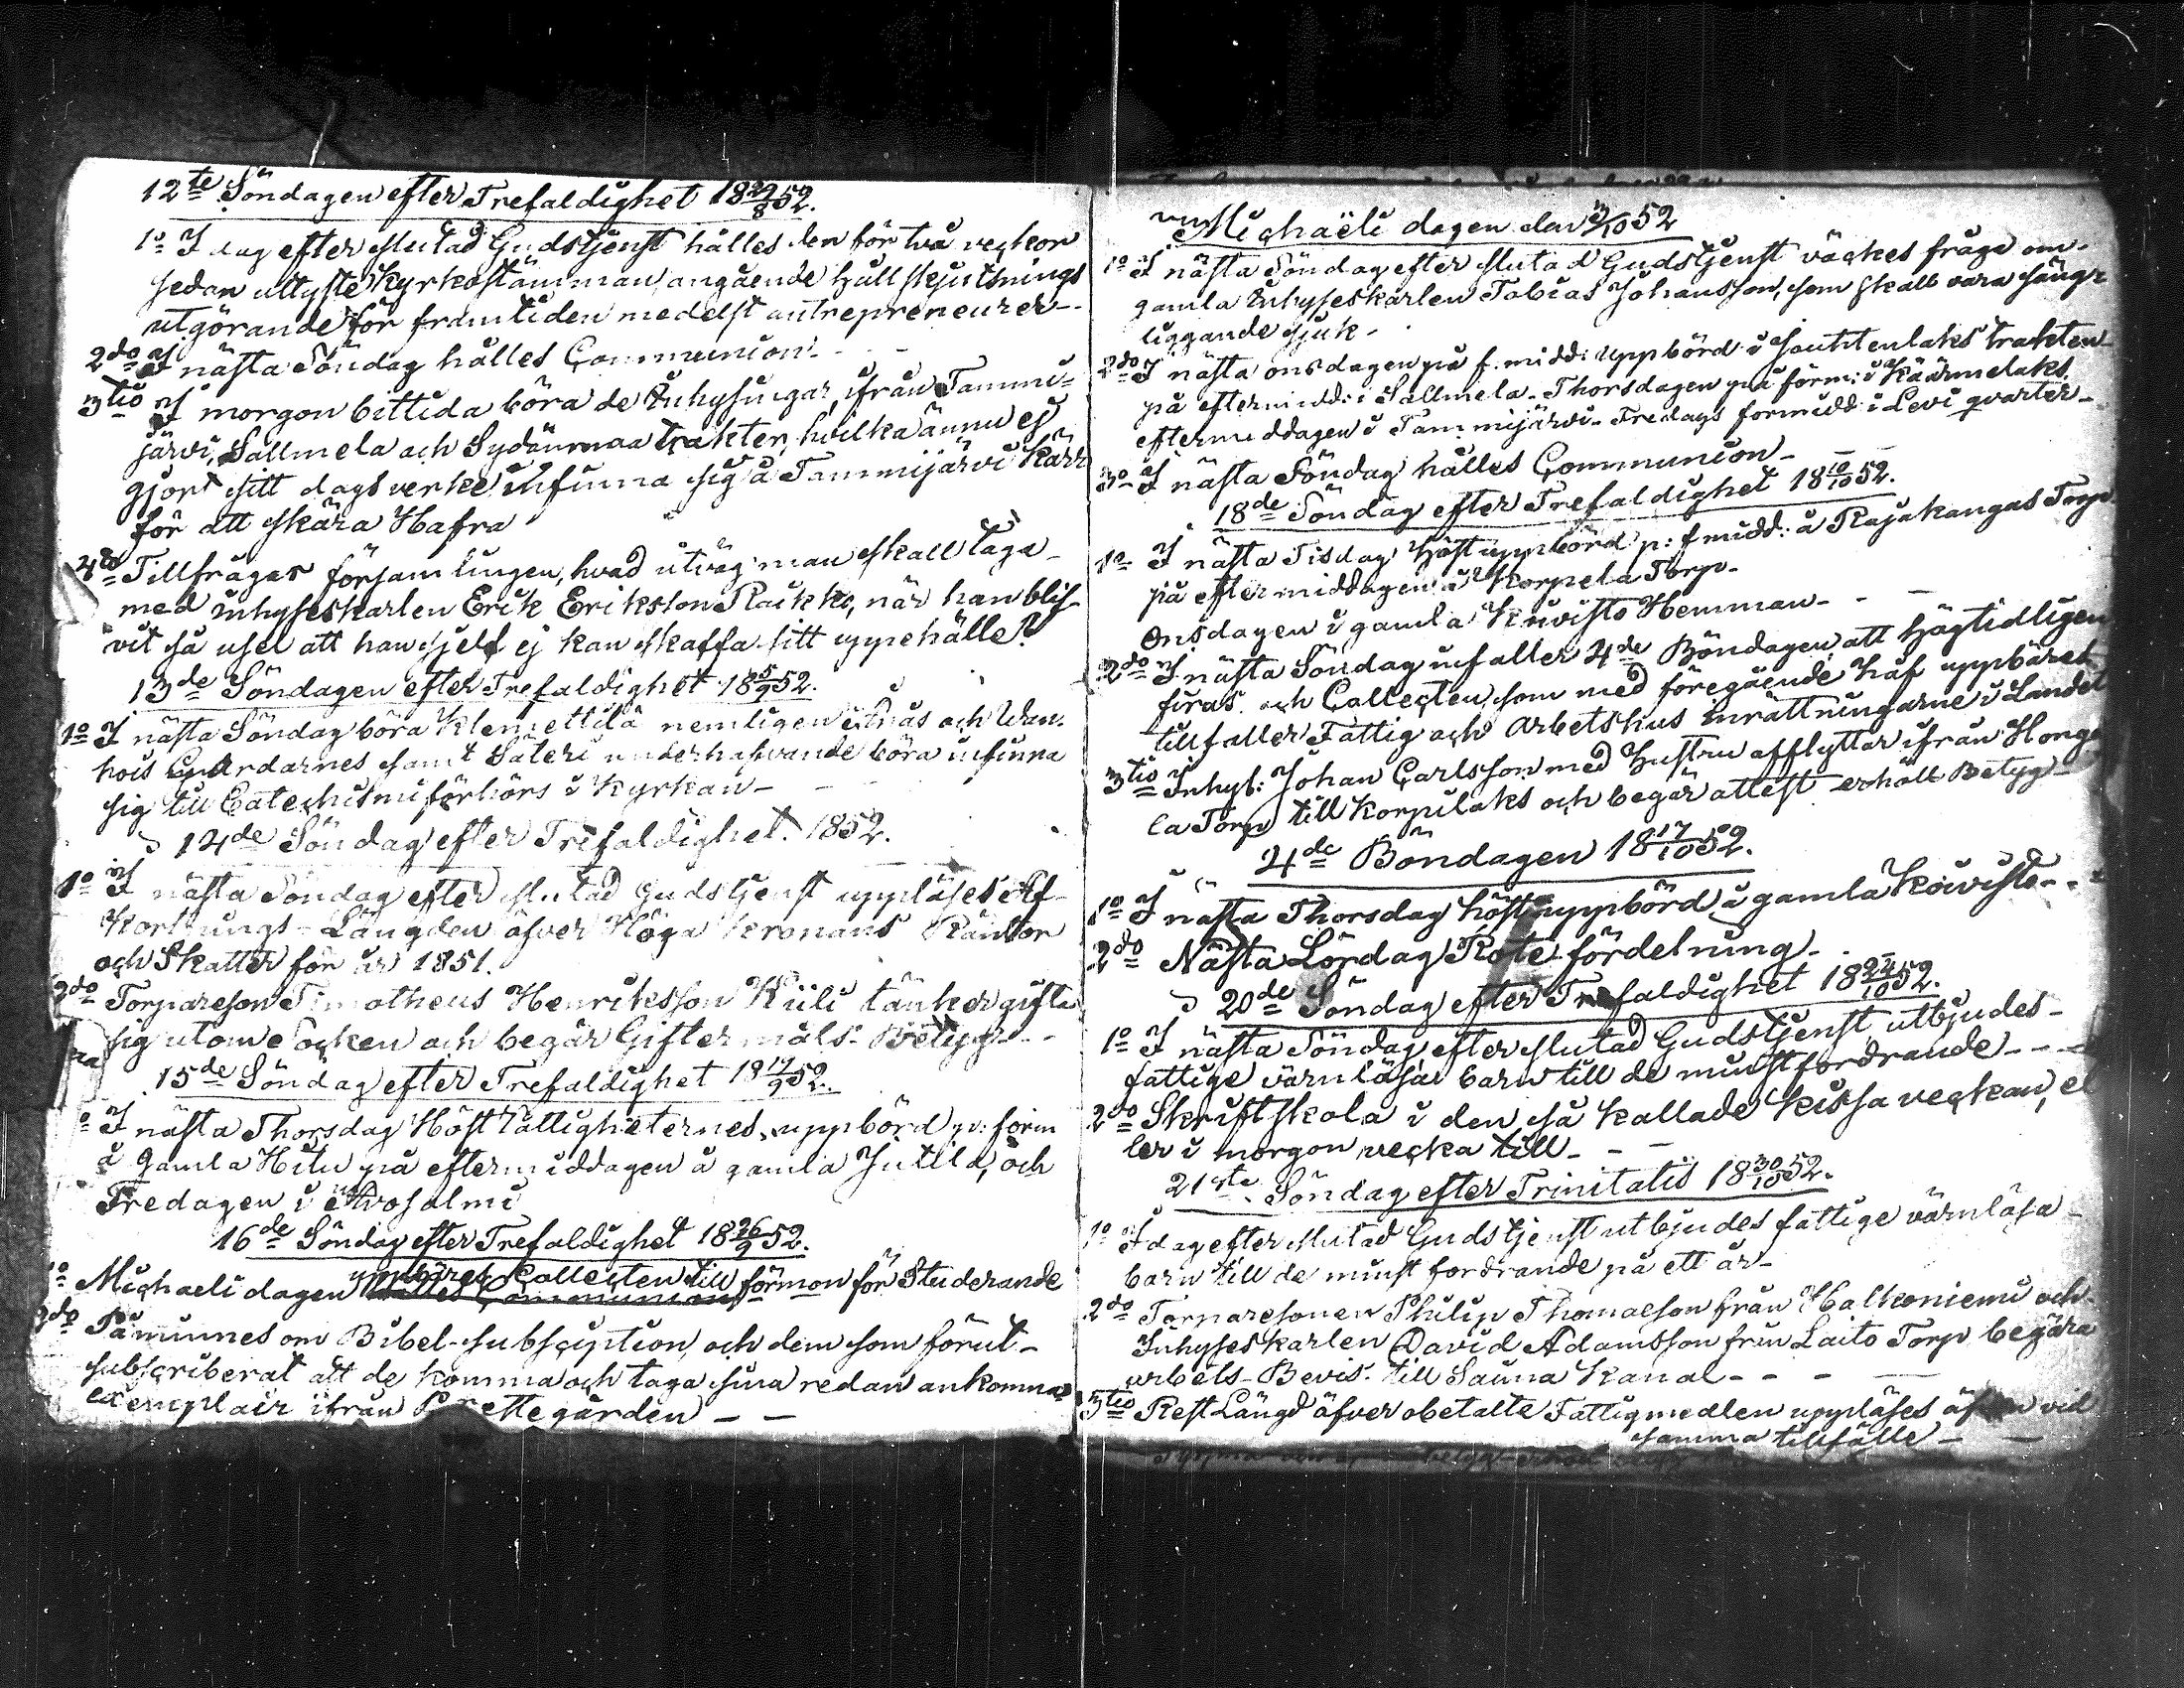 12te Söndagen efter Trefaldighet 18 29/8 52.
1o I dag efter slutad Gudstjenst hålles den för två veckor
sedan utlyste Kyrkostämman, angående hållskjutsnings
utgörande för framtiden medelst entrepreneurer -
2do I nästa Söndag hålles Communion -
3tio I morgon bittida böra de Inhysingar ifrån Tammi-
järvi, Sallmela och Sydänmaa trakter, hvilka ännu ej
gjort sitt dagsverke infinna sig å Tammijärvi Kärr
för att skära Hafra
4to Tillfrågas församlingen, hvad utväg man skall taga
med inhyseskarlen Erik Eriksson Raikko, när han blif-
vit så usel att han sjelf ej kan skaffa sitt uppehälle?
13de Söndagen efter Trefaldighet 18 5/9 52.
1o I nästa Söndag böra Klemettilä nemligen och Wan-
hois Gårdarnes samt Säteri underhafvande böra infinna
sig till Catechismiförhörs i Kyrkan -
14de Söndag efter Trefaldighet. 1852.
1o I nästa Söndag efter slutad Gudstjenst uppläses Af-
kortnings-Längden öfver Höga Kronans Räntor
och Skatter för år 1851.
2do Torpareson Timotheus Henriksson Kiili tänker gifta
sig utom Socken och begär Giftermåls-Betyg -
15de Söndag efter Trefaldighet 18 19/9 52.
1o I nästa Thorsdag Höst rättigheternes uppbörd p: form
å gamla Hitu på eftermiddagen å gamla Jutila, och
Fredagen i Arvosalmi
16de Söndag efter Trefaldighet 18 26/9 52.
uppbäres Collecten till
1o Michaeli dagen hålles Communion förmon för Studerande
2do Påminnes om Bibel-subscription, och dem som förut
subscriberat att de komma och taga sina redan ankomna
exemplair ifrån Prestegården -
Michaëli dagen den 3/10 52
1o I nästa Söndag efter slutad Gudstjenst väckes fråga om
gamla Inhyseskarlen Tobias Johansson, som skall vara säng-
liggande sjuk -
2do I nästa onsdagen på f. midd: uppbörd i Houttenlaks trakten
på eftermidd: i Sallmela - Thorsdagen på förm: i Käärmelaks
eftermiddagen i Tammijärvi - Fredags formidd: i Levi qvarter -
3o I nästa Söndag hålles Communion -
18de Söndag efter Trefaldighet 18 10/10 52.
1o I nästa Tisdag Höst uppbörd p: f midd: å Rajakangas Torp
på eftermiddagen å Korpela Torp -
Onsdagen i gamla Kuvisto Hemman -
2do I nästa Söndag infaller 4de Böndagen, att högtidligen
firas och Collecten, som med föregående håf uppbäres
tillfaller Fattig och Arbetshus inrättningarne i Landet
3tio Inhys: Johan Carlsson med Hustru afflyttar ifrån Honga
la Torp till Korpilaks och begär attest erhöll Betyg -
4de Böndagen 18 17/10 52.
1o I nästa Thorsdag höst uppbörd i gamla Koivisto -
2do Nästa Lördag Rote-fördelning -
20de Söndag efter Trefaldighet 18 24/10 52.
1o I nästa Söndag efter slutad Gudstjenst utbjudes
fattige värnlösa barn till de minst fordrande -
2do Skriftskola i den så kallade kissa veckan, el
ler i morgon vecka till -
21sta Söndag efter Trinitatis 18 30/10 52.
1o I dag efter slutad Gudstjenst utbjudes fattige värnlösa
barn till de minst fordrande på ett år -
2do Torparesonen Philip Thomaeson från Halkoniemi och
Inhyseskarlen David Adamsson från Laito Torp begära
arbets-Bevis till Saima Kanal -
3tio Rest Längd öfver obetalte Fattigmedlen uppläses äfven vid
samma tillfälle -